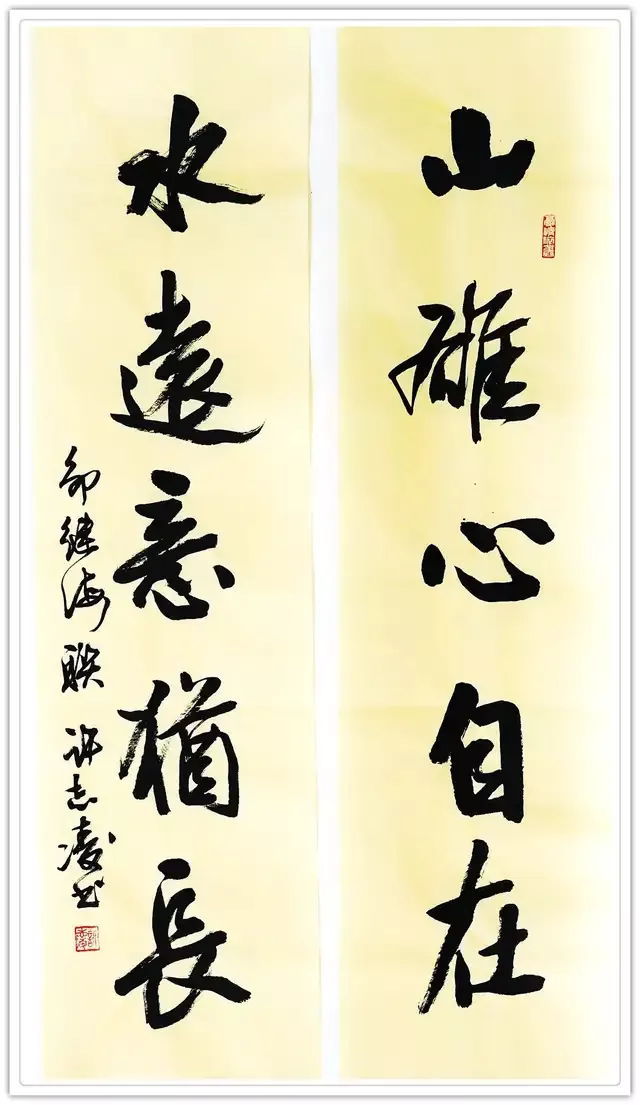 山雄心自在
水遠意猶長
继海联 许志凌书